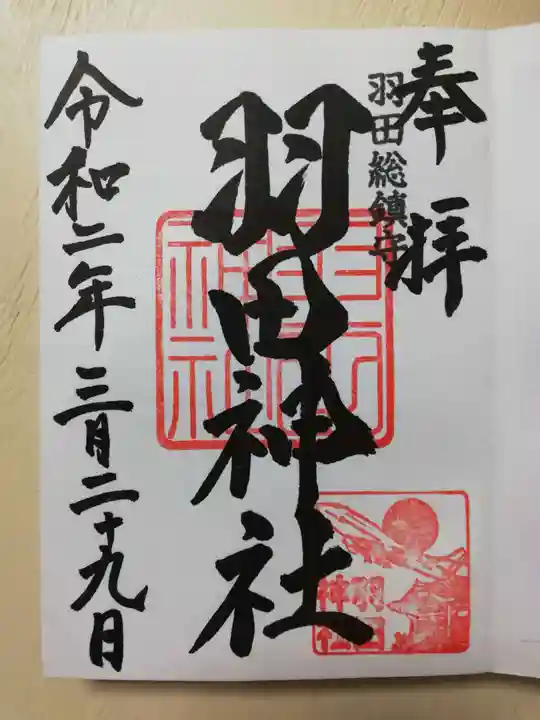 奉拝
羽田総鎮守
羽田神社
羽田神社
羽田神社
令和二年三月二十九日